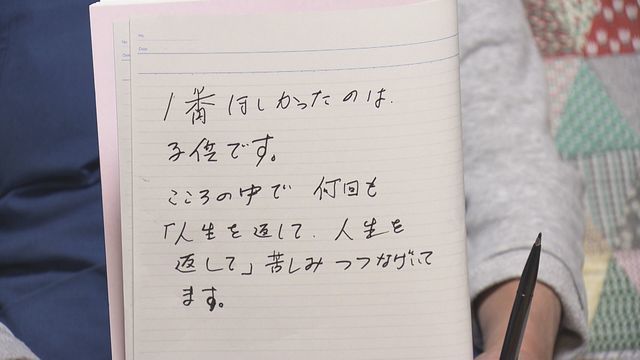 No.
Date
1番ほしかったのは.
子供です。
こころの中で 何回も
「人生を返して. 人生を
返して」苦しみ つつなげいて
ます。